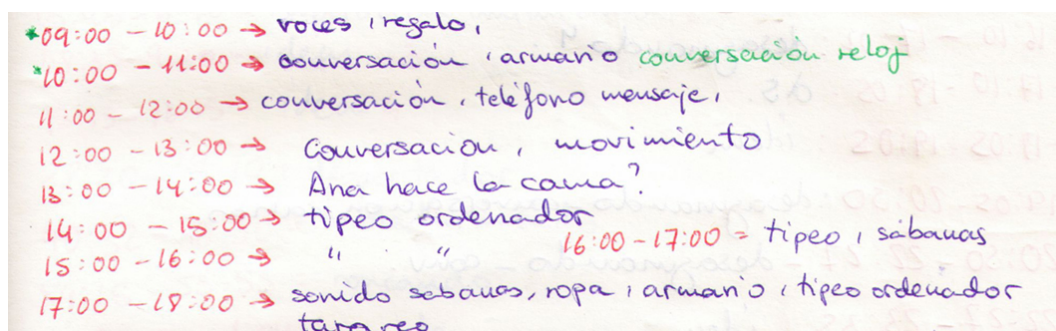 *09:00 - 10:00 → voces, regalo,
*10:00 - 11:00 → conversación, armario conversación reloj
11:00 - 12:00 → conversación, teléfono mensaje,
12:00 - 13:00 → Conversacion, movimiento
13:00 - 14:00 → Ana hace la cama?
14:00 - 15:00 → tipeo ordenador
15:00 - 16:00 → " " 16:00 - 17:00 = tipeo, sábanas
17:00 - 18:00 → sonido sabanas, ropa, armario, tipeo ordenador
tarareo